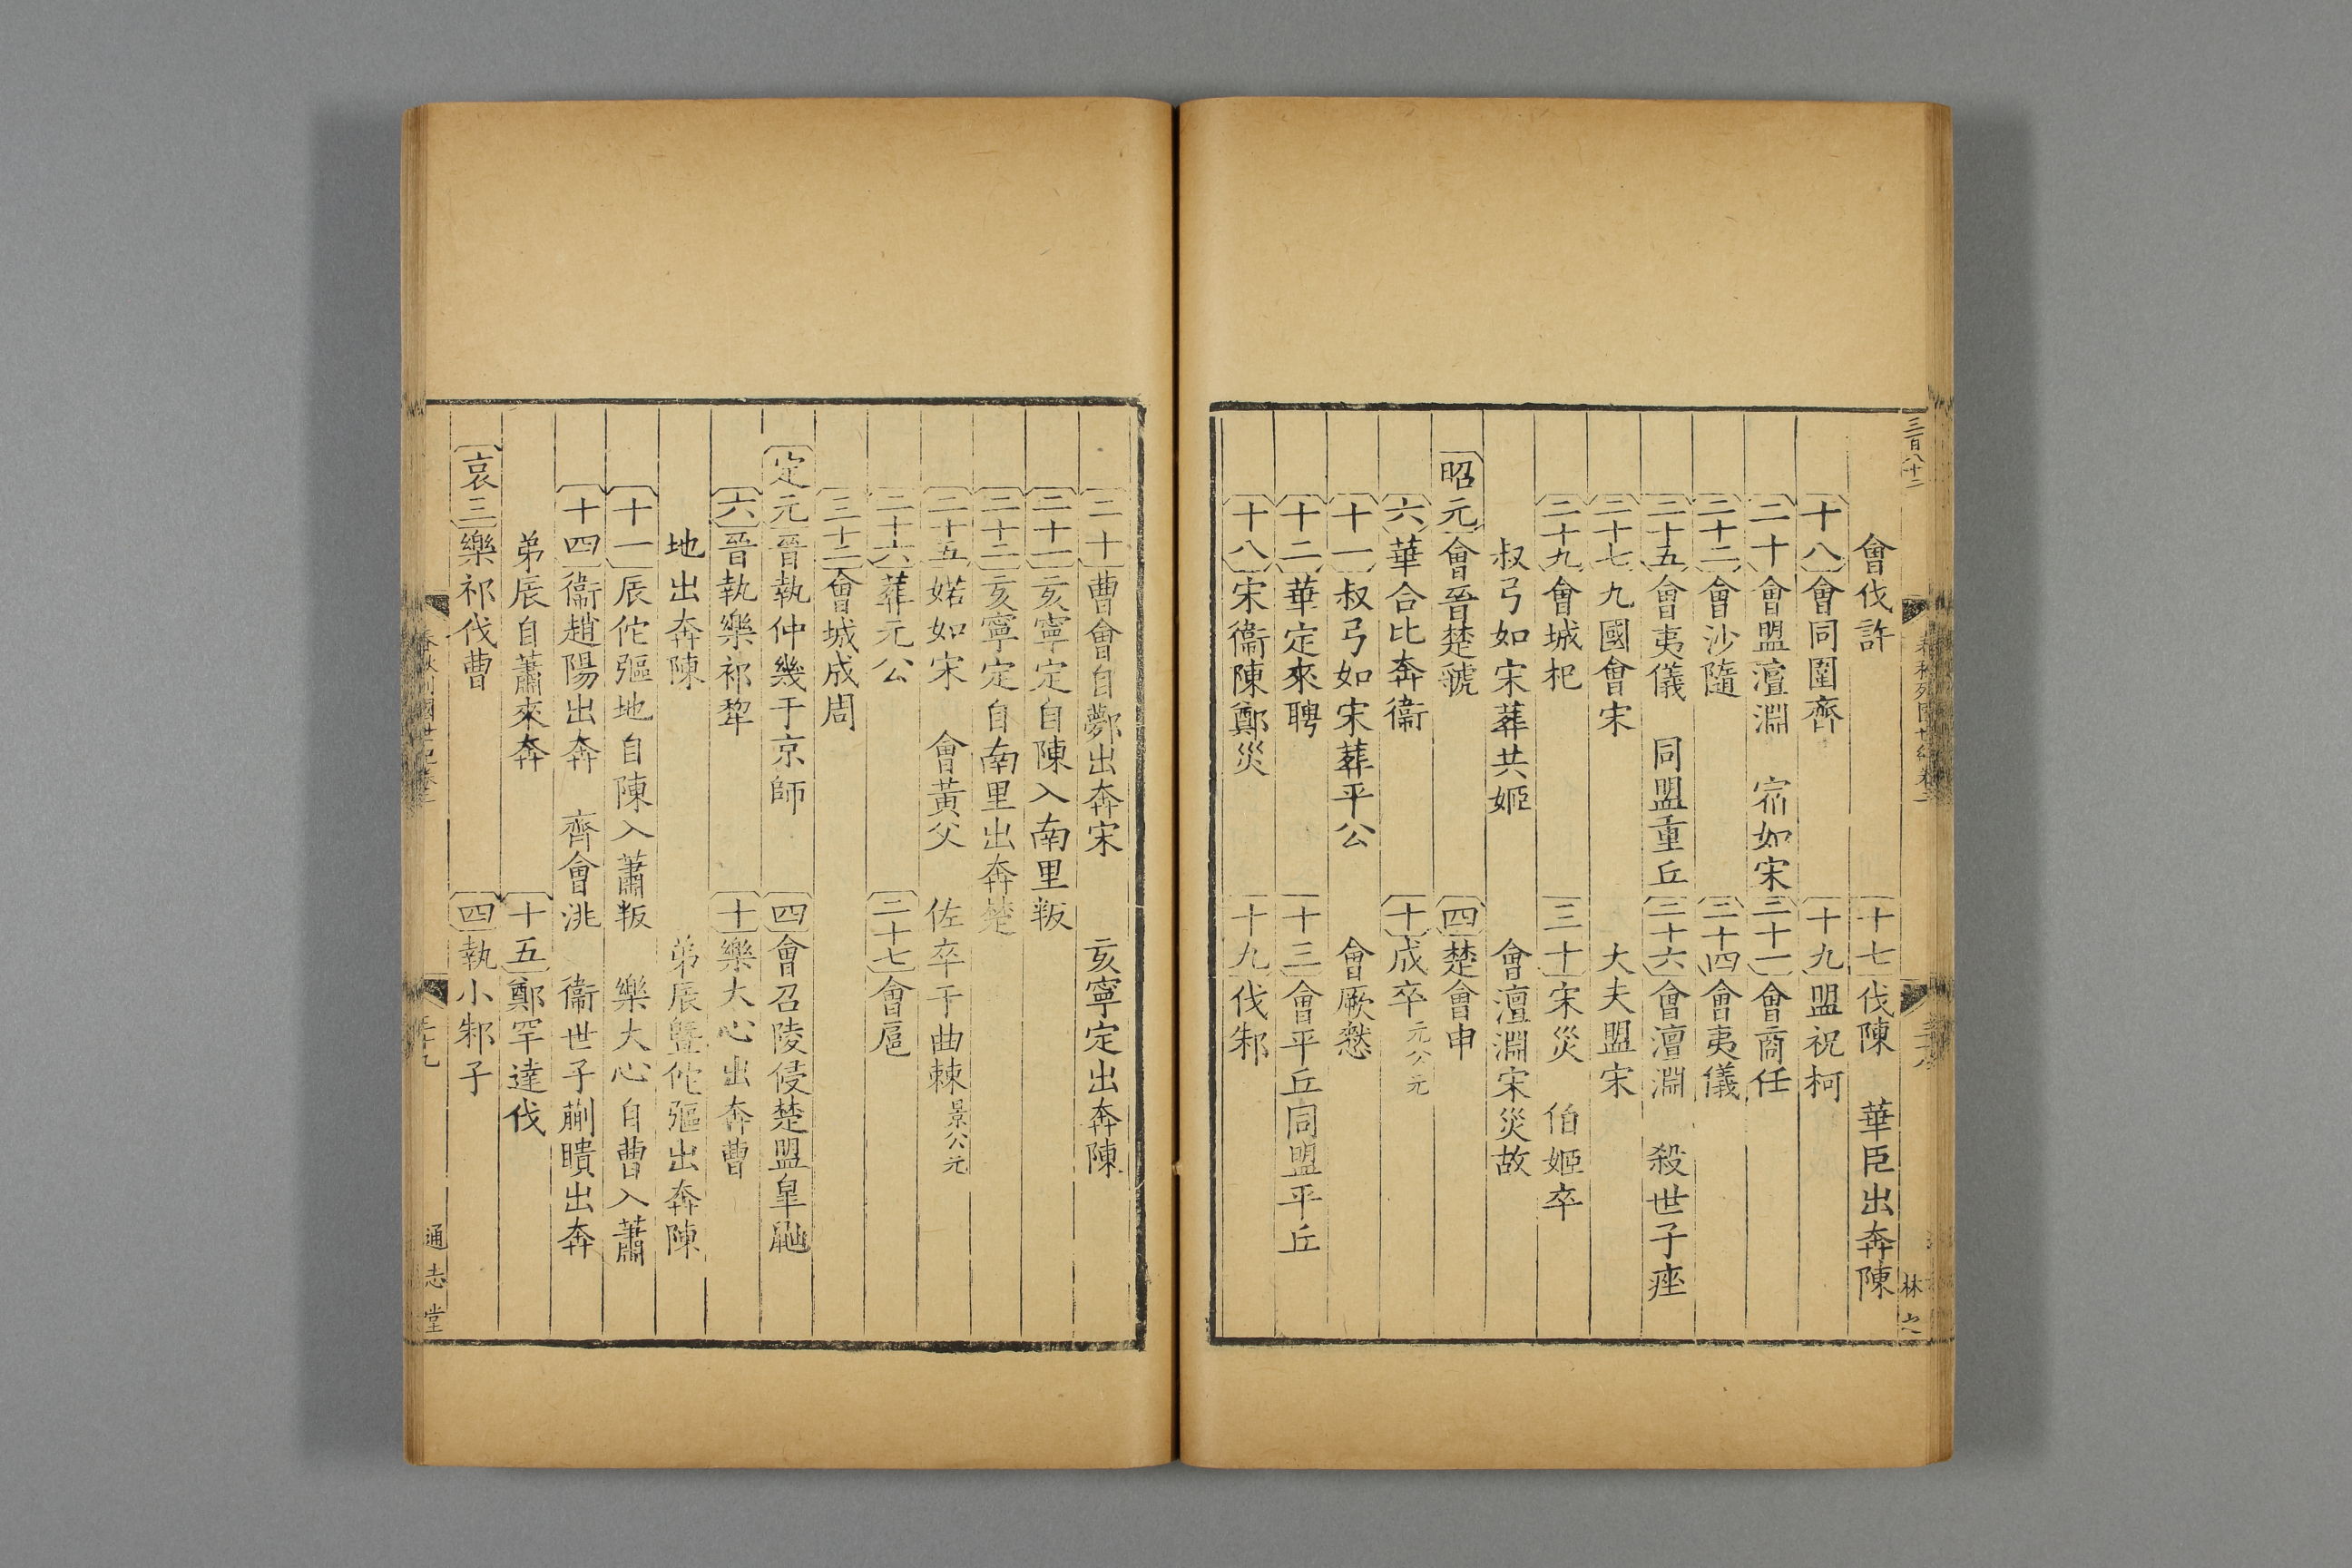 三百八十二
會伐許　十七　伐陳　華臣出奔陳
十八　會同圍齊　十九　盟祝柯
二十　會盟澶淵　宿如宋　二十一　會商任
二十二　會沙隨　二十四　會夷儀
二十五　會夷儀　同盟重丘　二十六　會澶淵　殺世子痤
二十七　九國會宋　大夫盟宋
二十九　會城杞　三十　宋災　伯姬卒
叔弓如宋葬共姬　會澶淵宋災故
昭元　會晉楚虢　四　楚會申
六　華合比奔衞　十　成卒　元公元
十一　叔弓如宋葬平公　會厥憖
十二　華定來聘　十三　會平丘同盟平丘
十八　宋衞陳鄭災　十九　伐邾
二十　曹會自鄸出奔宋　亥寧定出奔陳
二十一　亥寧定自陳入南里叛
二十二　亥寧定自南里出奔楚
二十五　婼如宋　會黃父　佐卒于曲棘　景公元
二十六　葬元公　二十七　會扈
三十二　會城成周
定元　晉執仲幾于京師　四　會召陵侵楚盟皐鼬
六　晉執樂祁犂　十　樂大心出奔曹
地出奔陳　弟辰曁佗彄出奔陳
十一　辰佗彄地自陳入蕭叛　樂大心自曹入蕭
十四　衞趙陽出奔　齊會洮　衞世子蒯聵出奔
弟辰自蕭來奔　十五　鄭罕達伐
哀三　樂祁伐曹　四　執小邾子
通志堂